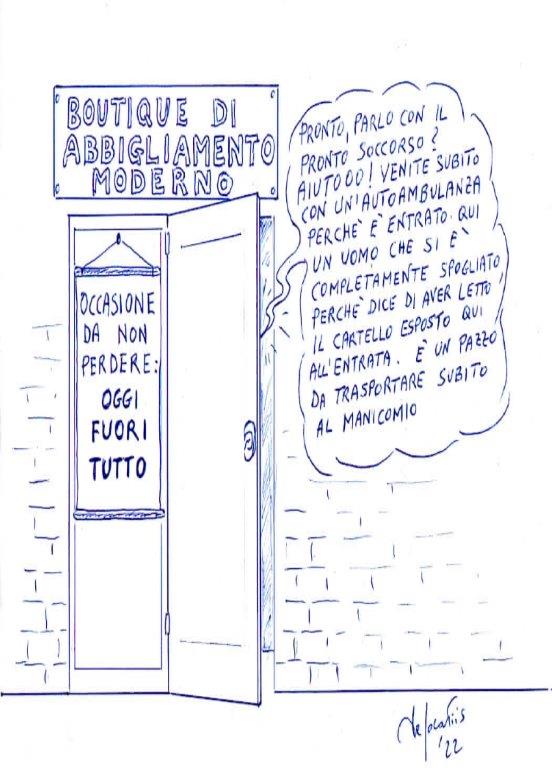 BOUTIQUE DI
ABBIGLIAMENTO
MODERNO
OCCASIONE
DA NON
PERDERE:
OGGI
FUORI
TUTTO
PRONTO, PARLO CON IL
PRONTO SOCCORSO?
AIUTOOO! VENITE SUBITO
CON UN'AUTOAMBULANZA
PERCHÈ È ENTRATO QUI
UN UOMO CHE SI È
COMPLETAMENTE SPOGLIATO
PERCHÈ DICE DI AVER LETTO
IL CARTELLO ESPOSTO QUI
ALL'ENTRATA. È UN PAZZO
DA TRASPORTARE SUBITO
AL MANICOMIO
'22